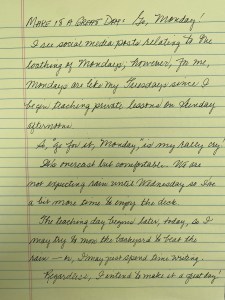 Make it a Great Day! Go, Monday!
I see social media posts relating to the
loathing of Mondays; however, for me,
Mondays are like my Tuesdays since I
begin teaching private lessons on Sunday
afternoon.
So, "go for it, Monday," is my rallying cry!
It's overcast but comfortable. We are
not expecting rain until Wednesday so I've
a bit more time to enjoy the deck.
The teaching day begins later, today, so I
may try to mow the backyard to beat the
rain — or, I may just spend time writing.
Regardless, I intend to make it a great day!